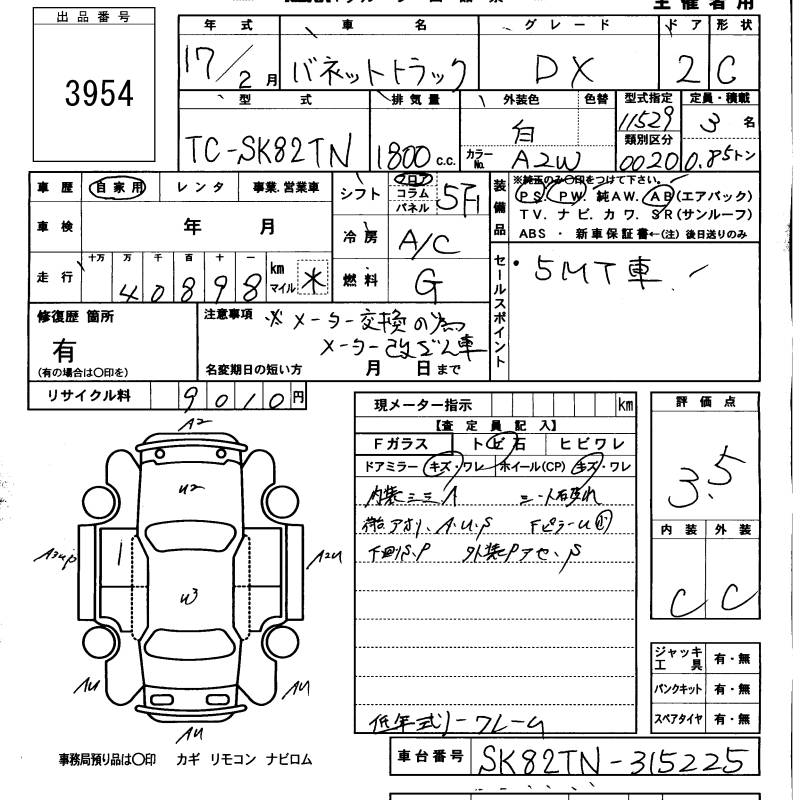 主催者用
出品番号
3954
年式 車名 グレード ドア 形状
17/2月 バネットトラック DX 2 C
型式 排気量 外装色 色替 型式指定 定員・積載
TC-SK82TN 1800 c.c. 白 11529 3名
カラーNo. A2W 類別区分 0020 0.85トン
車歴 自家用 レンタ 事業.営業車
車検 年 月
走行 十万 万 千 百 十 一
40898 km マイル ※
シフト フロア コラム パネル 5F
冷房 A/C
燃料 G
装備品 ※純正のみ○印をつけて下さい。
PS. PW. 純AW. AB(エアバック)
TV. ナビ. カワ. SR(サンルーフ)
ABS ・ 新車保証書←(注) 後日送りのみ
セールスポイント
・5MT車
修復歴 箇所
有
(有の場合は○印を)
注意事項 ※メーター交換の為
メーター改ざん車
名変期日の短い方 月 日まで
リサイクル料 9010円
現メーター指示 km
【査定員記入】
Fガラス トビ石 ヒビワレ
ドアミラー キズ・ワレ ホイール(CP) キズ・ワレ
内装 シート
アオリ、A.U.S FピラーU
下廻りS.P 外装Pアセ.S
低年式 フレーム
評価点
3.5
内装 外装
C C
A2
U2
A3UP
A2U
U3
AU
AU
AU
ジャッキ工具 有・無
パンクキット 有・無
スペアタイヤ 有・無
事務局預り品は○印 カギ リモコン ナビロム
車台番号 SK82TN-315225